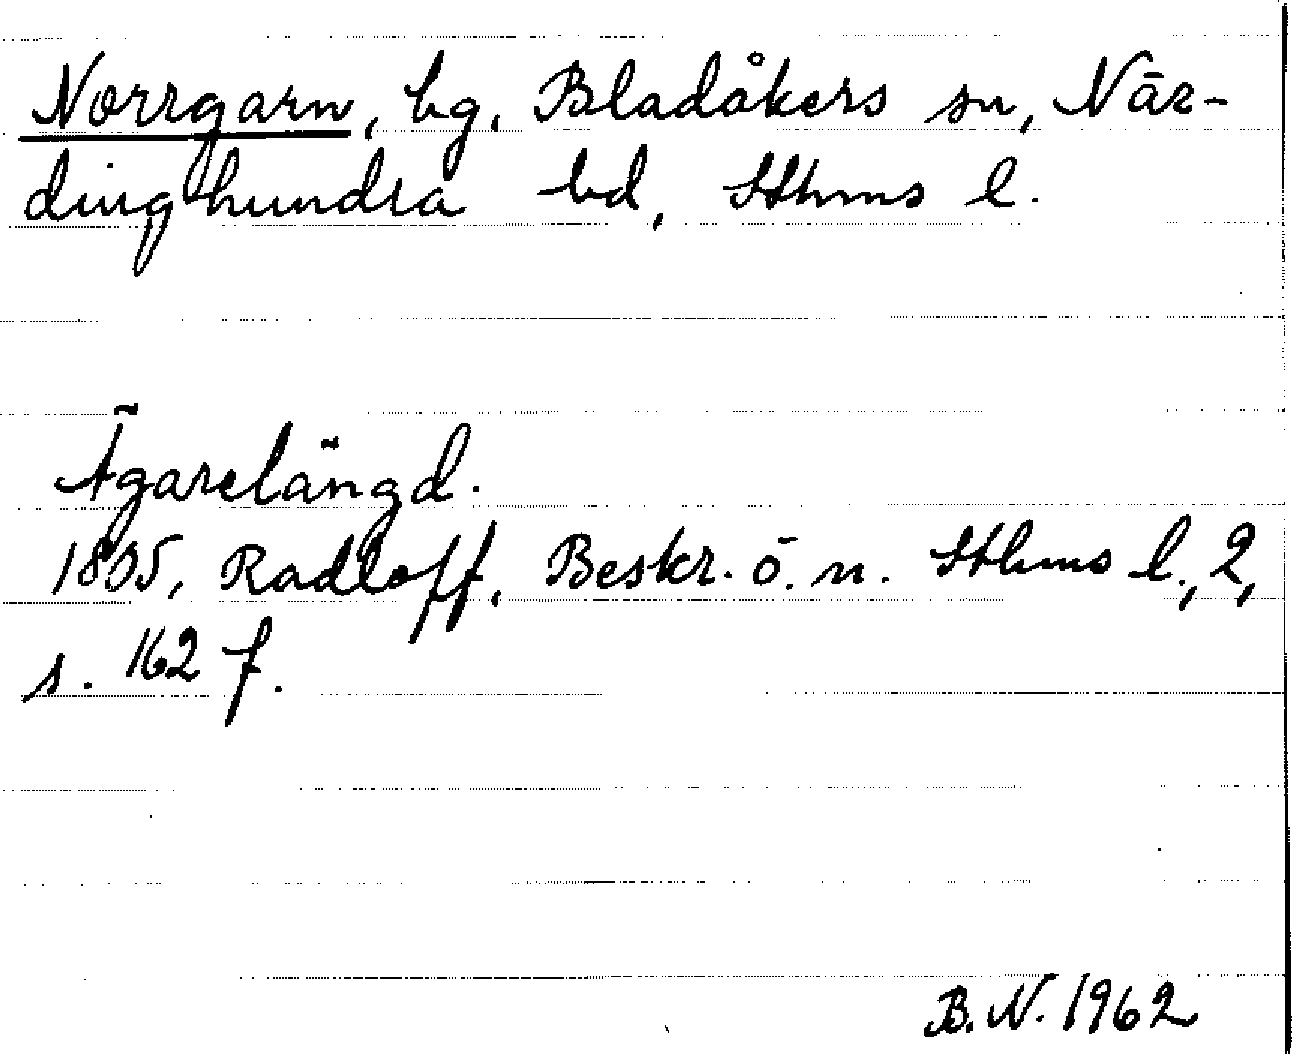 Norrgarn, by, Bladåkers sn, När-
dinghundra hd, Sthms l.
Ägarelängd.
1805, Radloff, Beskr. ö. n. Sthms l., 2,
s. 162 f.
B. N. 1962